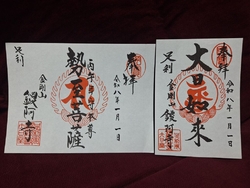 奉拝
令和八年一月一日
丙午年守本尊
勢至菩薩
足利
金剛山
鑁阿寺
奉拝
令和八年一月一日
大日如来
足利
金剛山
鑁阿寺